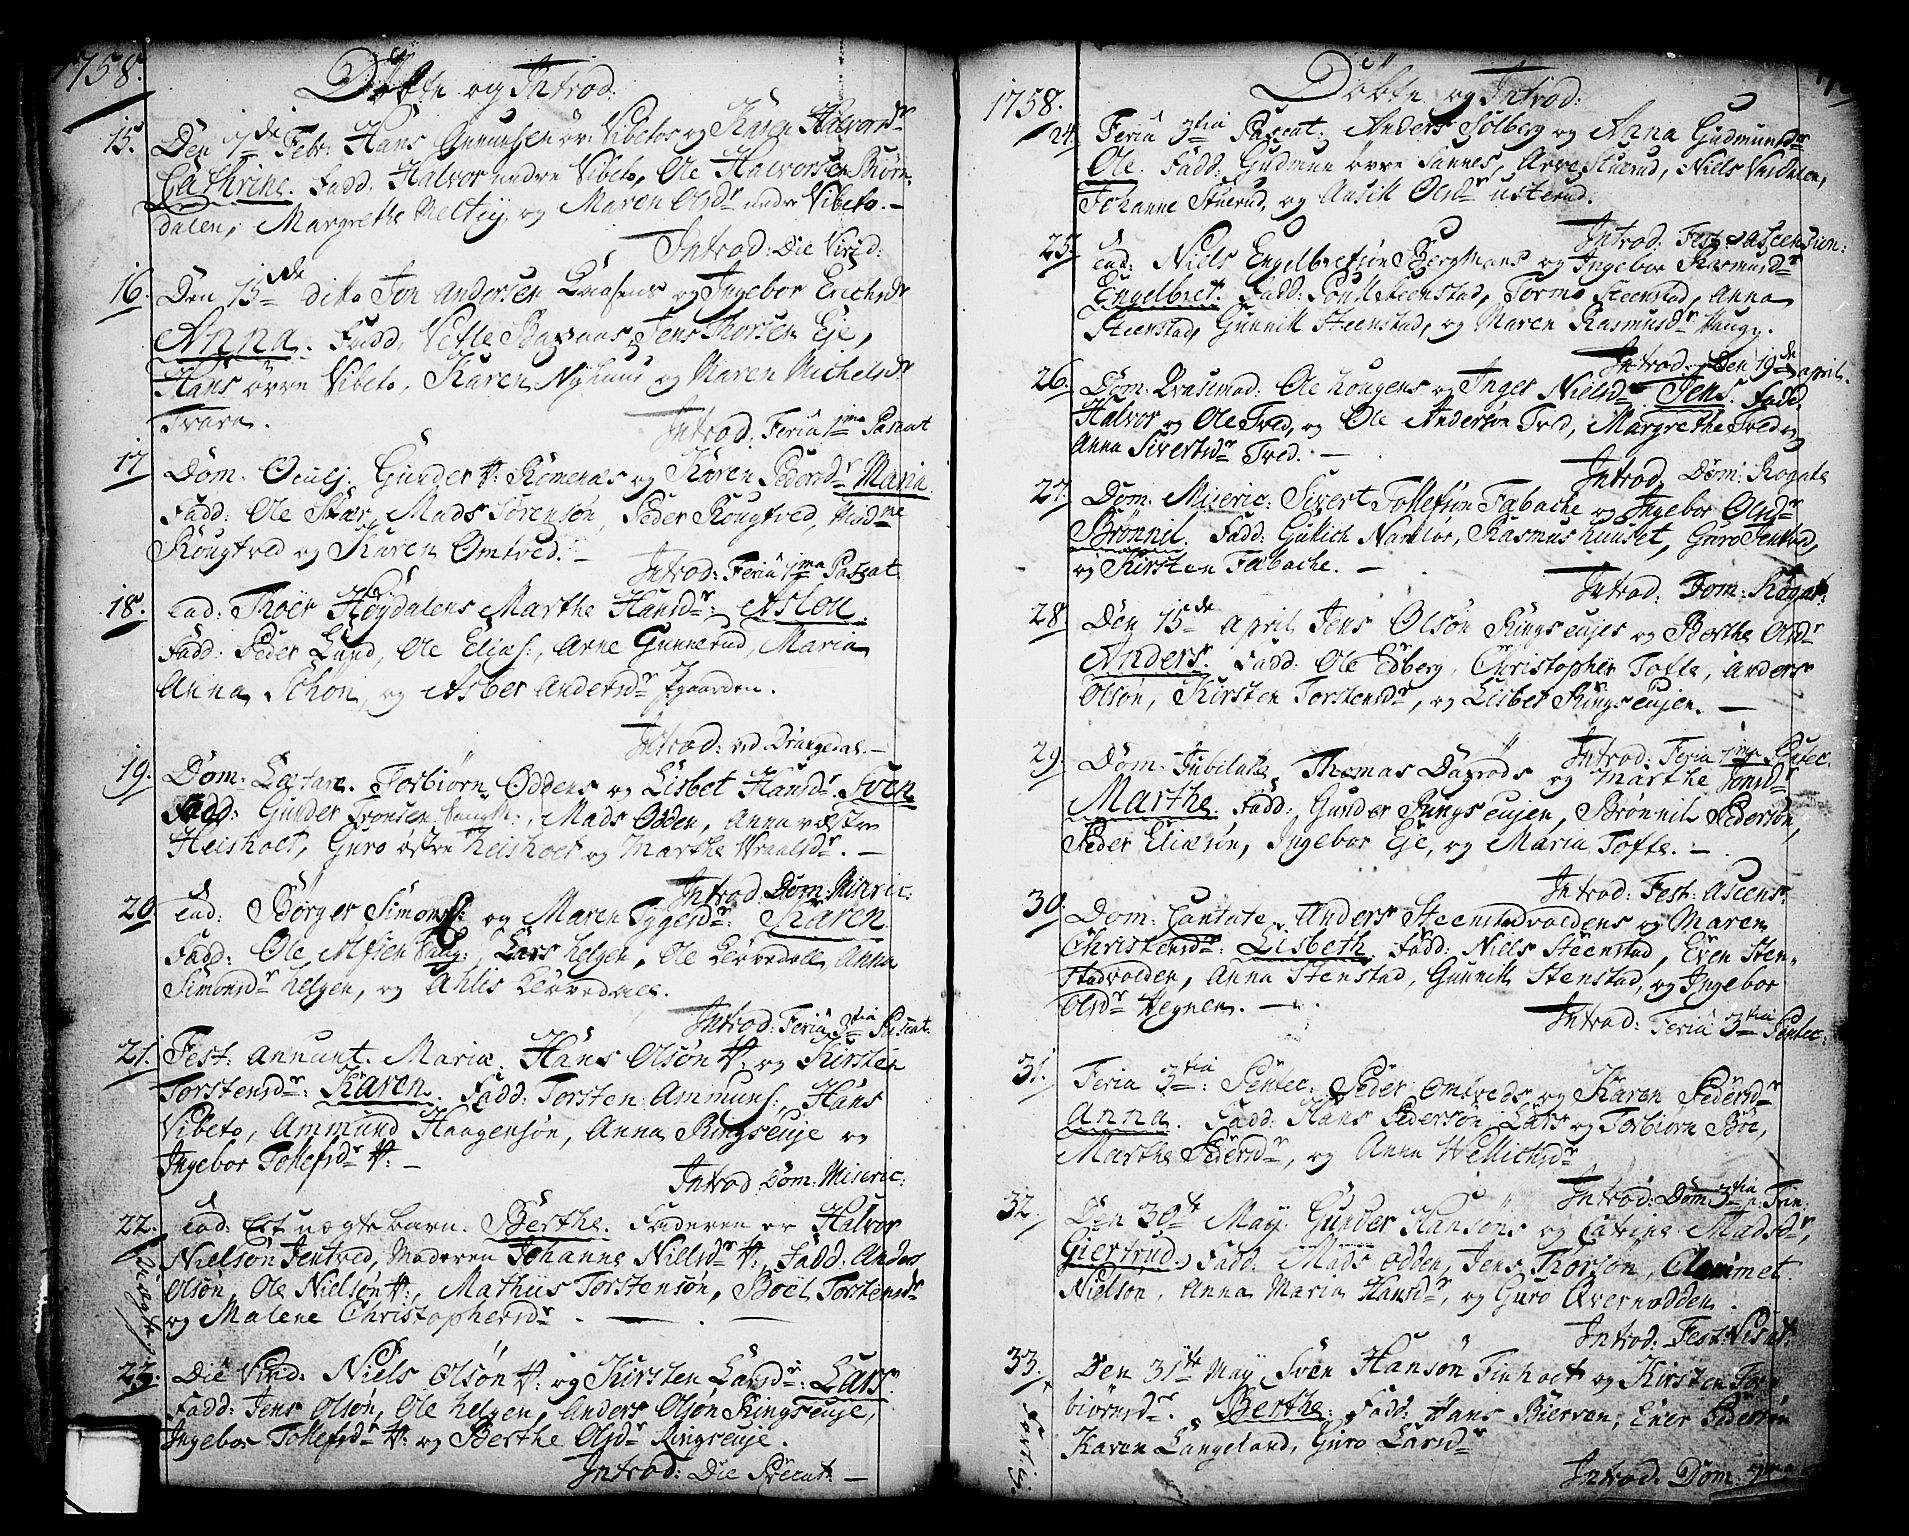 1758.
Döbte og Introd:
15. Den 7de Febr: Hans Gunnersen övr: Vibetos og Karen Halvorsdr
Cathrine. Fadd: Halvor nedre Vibeto, Ole Halvorsen Biörn-
dalen, Margrethe Meltiy og Maren Olsdr nedr Vibeto. –
Introd: Die Virid:
16. Den 13de ditto Jon Andersen og Ingebor Erichsdr
Anna. Fadd: Vetle, Jens Thorsen Eje,
Hans övre Vibeto, Karen Nyhuus og Maren Michelsdr
Trara.
Introd: Feriâ 1ma Pascat
17 Dom. Oculj. Gunder Romenæs og Karen Pedersdr Maria
Fadd: Ole Skær, Mads Sörensön, Peder Rougtved, Madme
Rougtved og Karen Omtved. –
Introd: Feriâ 1ma Pascat.
18. Ead: Thoer Höydalens Marthe Hansdr: Aslou
Fadd: Peder Lund, Ole Elias:, Arne Gunnerud, Maria
Anna Schön, og Asber Andersdr.
Introd: ved Drangedal. –
19. Dom: Lætare. Torbiörn Oddens og Lisbet Hansdr. Sven
Fadd: Gunder Tronsen, Mads Odden, Anna væstre
Heisholt, Guro östre Heisholt og Marthe Wraalsdr. –
Introd Dom: Miseric:
20. Ead: Börger Simons: og Maren Tygersdr: Karen
Fadd: Ole, Lars Helgen, Ole Lövedalle, Anna
Simonsdr Helgen, og Ahlis Lövedall.
Introd: Feriâ 3tia Pascat.
21. Fest: Annunt. Mariæ. Hans Olsön og Kirsten
Torstensdr: Karen. Fadd: Torsten Ammuns:, Hans
Vibeto, Ammund Haagensön, Anna Ringseuje og
Ingebor Tollefsdr –
Introd: Dom: Miseric:
22. Ead: Ert uægte barn. Berthe. Faderen er Halvor
Uægte
Nielsön Jentved, Moderen Johanne Nielsdr, Fadd. Anders
Olsön, Ole Nielsön, Mathiis Torstensön, Boel Torstensdr
og Malene Christophersdr. –
23. Die Virid: Niels Olsön og Kirsten Larsdr: Lars.
Fadd: Jens Olsön, Ole Helgen, Anders Olsön Ringseuje,
Ingebor Tollefsdr og Berthe Olsdr Ringseuje.
Introd: Die Precat: –
1758.
Döbte og Introd:
24. Feriâ 3tiâ Pascat: Anders Solberg og Anna Gudmunsdr
Ole. Fadd: Gudmun övre Tannes, Arve Stuerud, Niels,
Johanne Stuerud, og Ansill Olsdr Usterud.
Introd: Fest: Ascension:
25. Ead: Niels Engelbretsön Bergmans og Ingebor Rasmusdr
Engelbret. Fadd: Poul Steenstad, Tormo Steenstad, Anna
Steenstad, Gunnill Steenstad, og Maren Rasmusdr Haugy.
Introd: Den 19de April.
26. Dom: Qvasimod: Ole Hougens og Inger Nielsdr Jens. Fadd.
Halvor og Ole Tved, og Ole Andersön Tved, Margrethe Tved og
Anna Sivertsdr Tved. –
Introd. Dom: Rogate
27. Dom: Miseric: Sivert Tollefsön Fabache og Ingebor Olsdr
Brönnil. Fadd: Gulich Narklos, Rasmus Huuset, Guro Jentved,
og Kirsten Fabache. –
Introd: Dom: Rogat:
28. Den 15de April Jens Olsön Ringseujes og Berthe Olsdr
Anders. Fadd: Ole Edberg, Christopher Tofte, Anders
Olsön, Kirsten Torstensdr, og Lisbet Ringseujen. –
Introd: Feria 1ma Pentec.
29. Dom: Jubilate, Thomas Dagrods og Marthe Jonsdr
Marthe. Fadd: Gunder Ringseujen, Brönnil Pedersön,
Peder Eliæsön, Ingebor Eje, og Maria Tofte. –
Introd: Fest: Ascens:
30. Dom: Cantate. Anders Steenstadvoldens og Maren
Christensdr: Lisbeth. Fadd: Niels Steenstad, Even Sten-
stadvolden, Anna Stenstad, Gunnill Stenstad, og Ingebor
Olsdr Hegnen. –
Introd: Feriâ 3tia Pentec:
31. Feria 3tia: Pentec: Peder Omtveds og Karen Pedersdr
Anna. Fadd: Hans Pedersön, Lars og Torbiörn Böe,
Marthe Pedersdr, og Anne Wellichsdr
Introd: Dom: 3tia: Trin.
32. Den 30te May. Gunder Hansöns og Catrine Madsdr,
Giertrud. Fadd: Mads Odden, Jens Thorsön, Clemmet
Nielsön, Anna Maria Hansdr, og Guro Overnodden.
Introd: Fest: Visit:
33. Den 31te May Sven Hansön Finholt og Kirsten Tor-
biörnsdr. Berthe: Fadd: Hans Bierven, Ener Pedersön
Karen Langeland, Guro Larsdr
Introd: Dom: